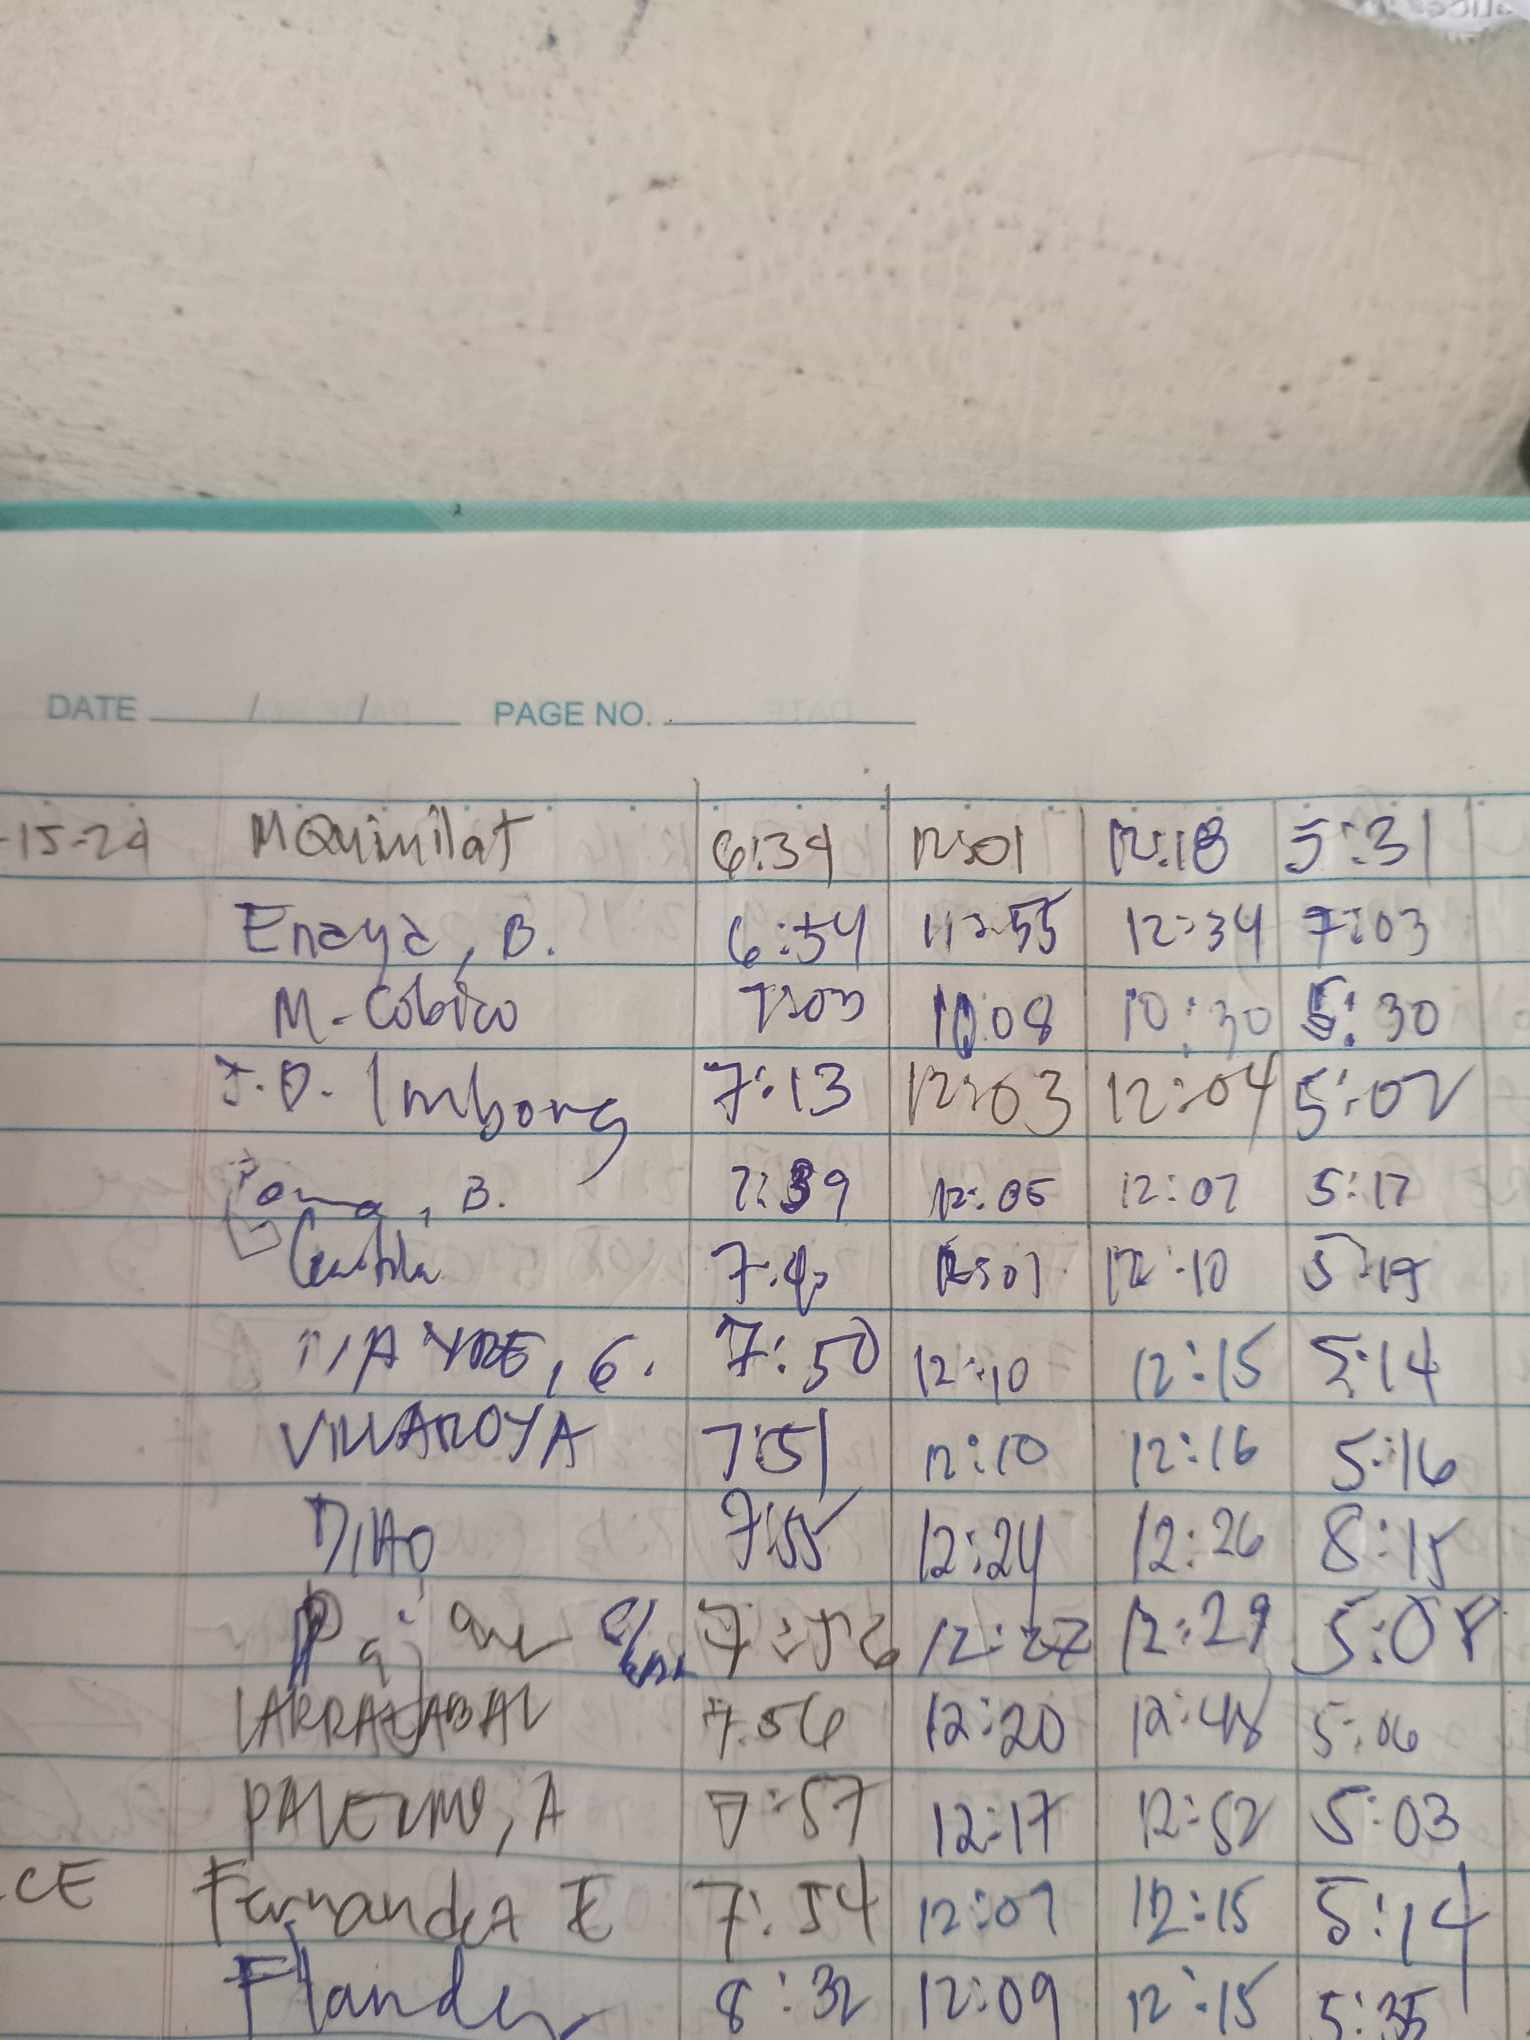 DATE / / PAGE NO.
-15-24 MQuimilat 6:34 12:01 12:18 5:31
Enaya, B. 6:54 11:55 12:34 7:03
M. Cobico 7:03 10:08 10:30 5:30
J.O. Imborg 7:13 12:03 12:04 5:02
B. 7:39 12:05 12:07 5:17
7:40 12:07 12:10 5:19
7:50 12:10 12:15 5:14
VILLAROYA 7:51 12:10 12:16 5:16
7:55 12:24 12:26 8:15
7:56 12:27 12:29 5:08
LARRAZABAL 7:56 12:20 12:48 5:06
PALERMO, A 7:57 12:17 12:52 5:03
CE Fernandez E 7:54 12:07 12:15 5:14
8:32 12:09 12:15 5:35